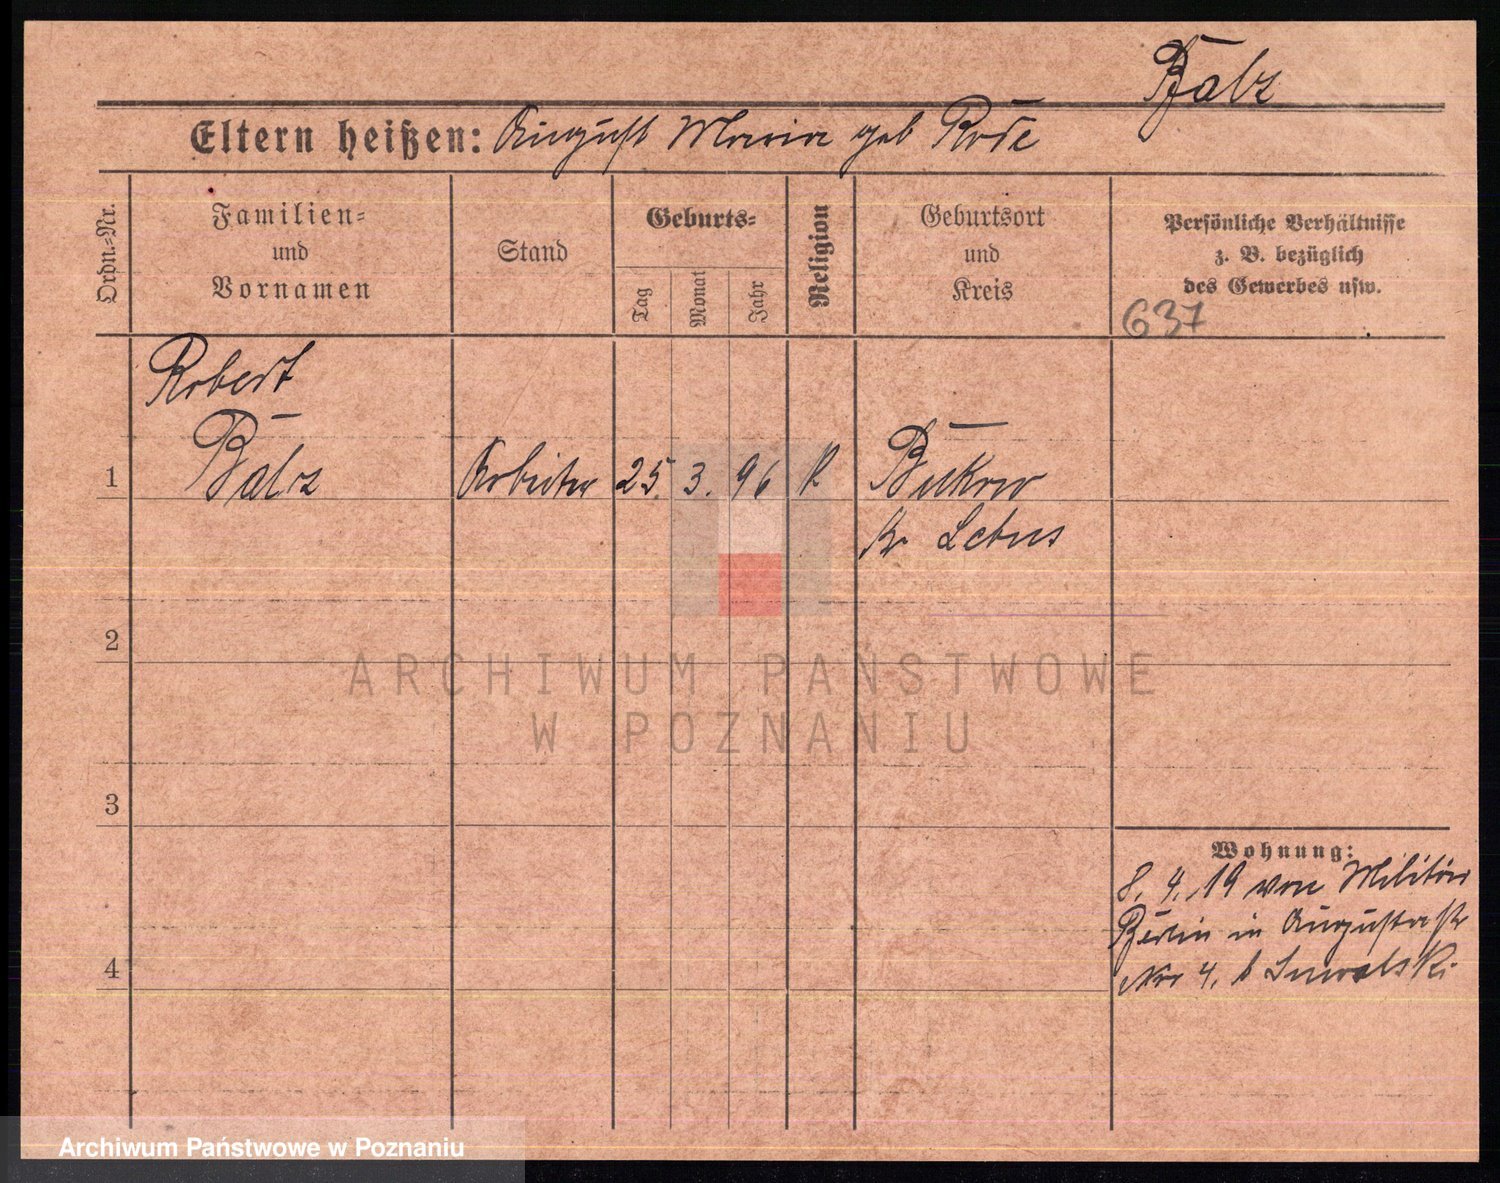 Balz
Eltern heißen: August Maria geb Rode
Ordn.=Nr.
Familien=
und
Vornamen
Stand
Geburts=
Tag
Monat
Jahr
Religion
Geburtsort
und
Kreis
Persönliche Verhältnisse
z. B. bezüglich
des Gewerbes usw.
637
Robert
1 Balz Arbeiter 25. 3. 96 k Buckow
Kr Lebus
2
ARCHIWUM PAŃSTWOWE
W POZNANIU
3
Wohnung:
8. 4. 19 von Militär
Berlin in Augustastr
4 Nr 4. b Suwalski
Archiwum Państwowe w Poznaniu